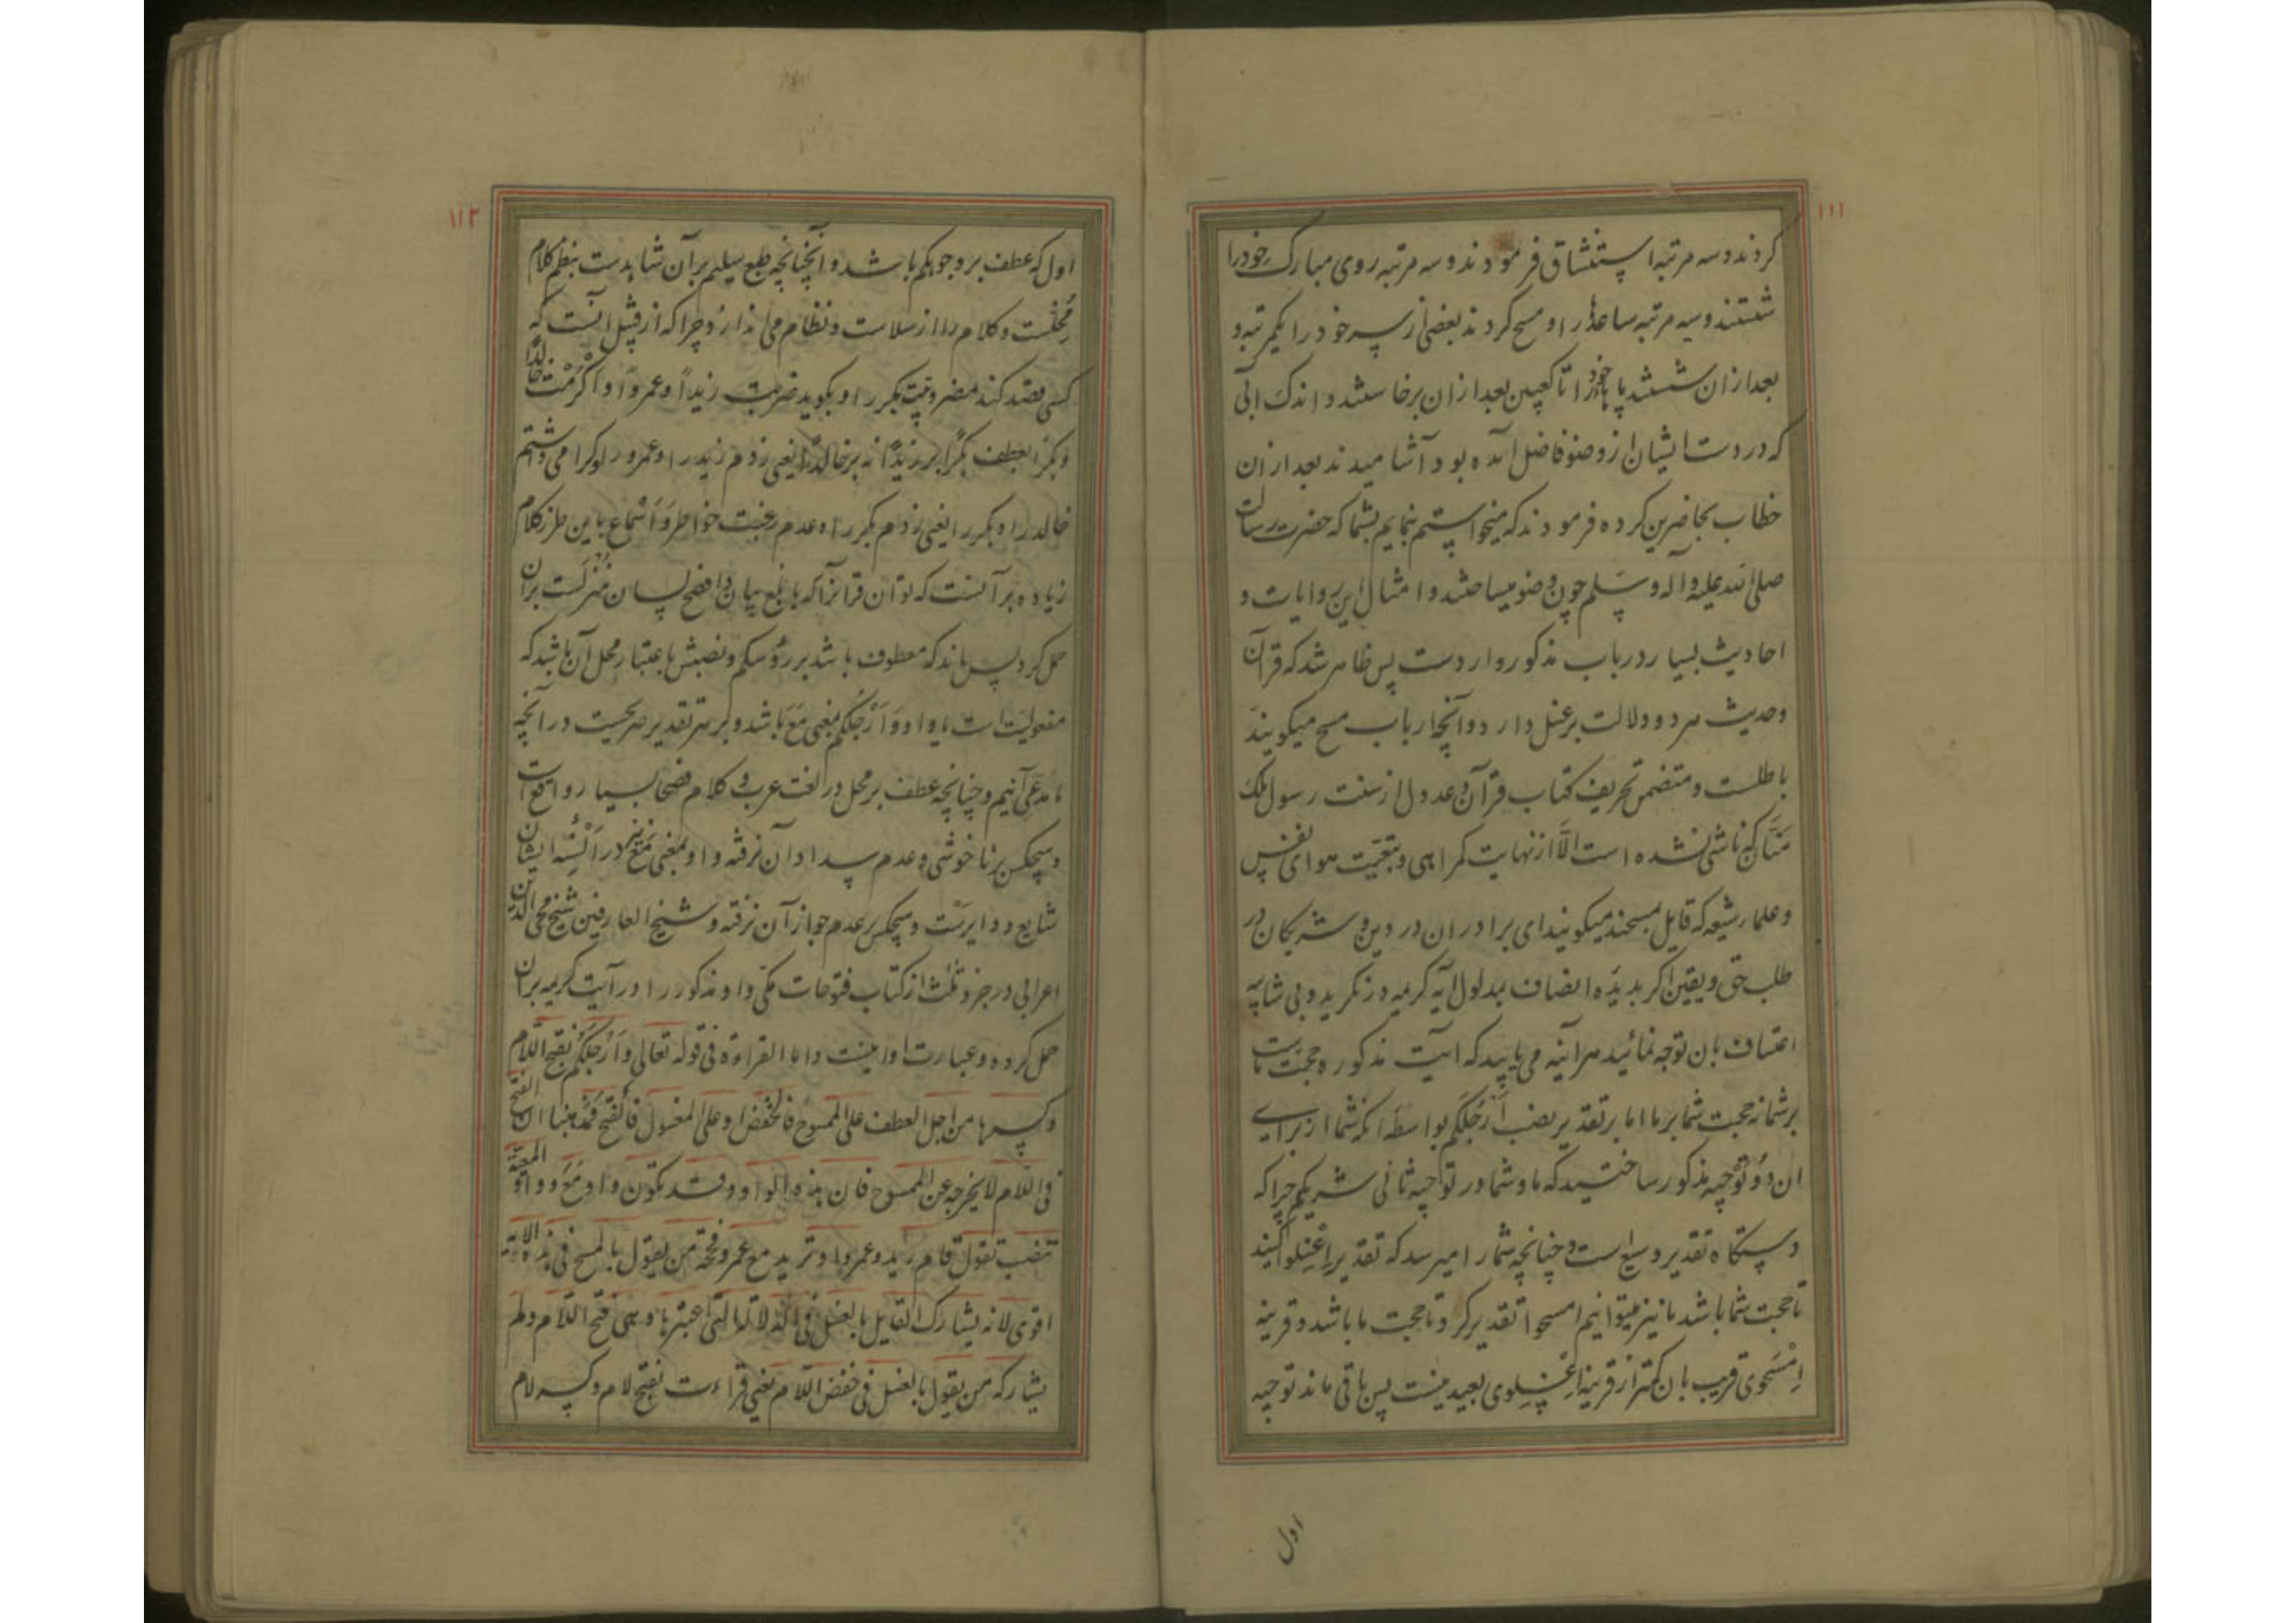 ۱۱۱
کردند و سه مرتبه استنشاق فرمودند و سه مرتبه روی مبارک خود را
شستند و سه مرتبه ساعدها را و مسح کردند بعضی از سر خود را یکمرتبه و
بعد از آن شستند پاهای خود را تا کعبین بعد از ان برخاستند و اندک آبی
که در دست ایشان از وضو فاضل آمده بود آشامیدند بعد از ان
خطاب بحاضرین کرده فرمودند که میخواستم بنمایم بشما که حضرت رسالت
صلی الله علیه و آله و سلم چون وضو میساختند و امثال این روایات و
احادیث بسیار در باب مذکور واردست پس ظاهر شد که قرآن
و حدیث هر دو دلالت بر غسل دارد و آنچه ارباب مسح میکویند
باطلست و متضمن تحریف کتاب قرآن و عدول از سنت رسول ملک
منان که ناشی نشده است الا از نهایت کمراهی و تبعیت هوای نفس
و علماء شیعه که قایل بمسحند میکویند ای برادران در دین و شریکان در
طلب حق و یقین اکر بدیده انصاف بمدلول آیه کریمه در نکرید و بی شایبه
اعتساف بان توجه نمائید هر آینه می یابید که آیت مذکوره حجت ماست
بر شما نه حجت شما بر ما اما بر تقدیر نصب أرجلکم بواسطه آنکه شما از برای
ان دو توجیه مذکور ساختید که ما و شما در توجیه ثانی شریکیم چرا که
دستکاه تقدیر وسیع است و چنانچه شما را میرسد که تقدیر اغسلوا کنید
تا حجت شما باشد ما نیز میتوانیم امسحوا تقدیر کرد تا حجت ما باشد و قرینه
امسحوی قریب بان کمتر از قرینه اغسلوی بعید نیست پس باقی ماند توجیه
اول
۱۱۲
اول که عطف بر وجوهکم باشد و آنچنانچه طبع سلیم بر آن شاهدست بنظم کلام
مخلست و کلام را از سلاست و نظام می اندازد چرا که از قبیل آنست که
کسی قصد کند مضروبیت بکر را و بکوید ضربت زیداً و عمرواً و اکرمت خالداً
و بکراً بعطف بکراً بر زیداً نه بر خالداً یعنی زدم زید را و عمرو را و کرامی داشتم
خالد را و بکر را یعنی زدم بکر را و عدم رغبت خواطر و اسماع باین طرز کلام
زیاده بر آنست که توان قرآنرا که بابلغ بیان و افصح لسان منزلست بران
حمل کرد پس ماند که معطوف باشد بر رؤسکم و نصبش باعتبار محل آن باشد که
مفعولیت است یا واو و أرجلکم بمعنی مع باشد و بر هر تقدیر صریحست در آنچه
ما مدعی آنیم و چنانچه عطف بر محل در لغت عرب و کلام فصحا بسیار واقع است
و هیچکس بر ناخوشی و عدم سداد آن نرفته واو بمعنی مع نیز در السنه ایشان
شایع و دایرست و هیچکس بر عدم جواز آن نرفته و شیخ العارفین شیخ محی الدین
اعرابی در جزو ثلث از کتاب فتوحات مکی واو مذکور را در آیت کریمه بران
حمل کرده و عبارت او اینست و اما القراءة فی قوله تعالی و أرجلکم بفتح اللام
و کسرها من اجل العطف علی الممسوح فالخفض او علی المغسول فالفتح فمذهبنا ان الفتح
فی اللام لا یخرجه عن الممسوح فان هذه الواو و قد تکون واو مع و واو المعیة
تنصب تقول قام زید و عمروا و ترید مع عمرو فحجة من یقول بالمسح فی هذه الآیة
اقوی لانه یشارک القایل بالغسل فی الدلالة التی اعتبرها و هی فتح اللام و لم
یشارکه من یقول بالغسل فی خفض اللام یعنی قراءت بفتح لام و کسر لام